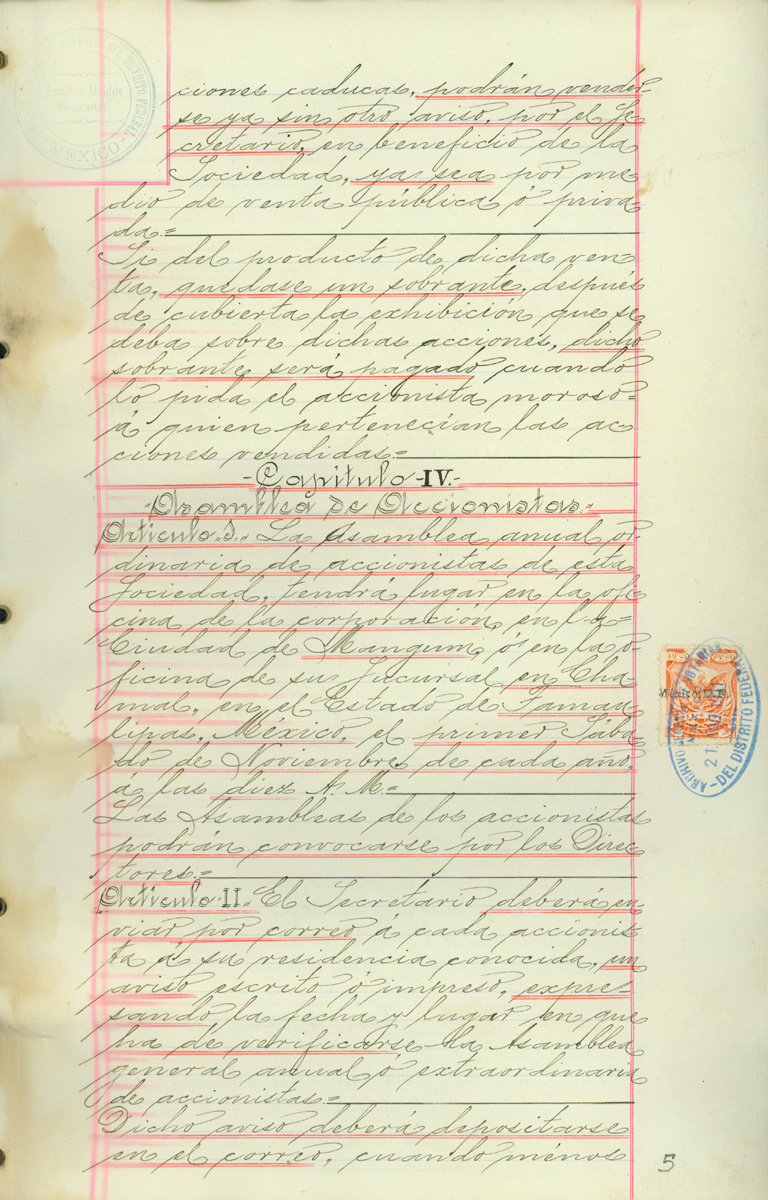 ciones caducas, podrán vender-
se ya sin otro aviso, por el Se-
cretario, en beneficio de la
Sociedad, ya sea por me=
dio de venta pública ó priva=
da=
Si del producto de dicha ven=
ta, quedase un sobrante, después
de cubierta la exhibición que se
deba sobre dichas acciones, dicho
sobrante será pagado cuando
lo pida el accionista moroso=
á quien pertenecian las ac
ciones vendidas=
-Capitulo-IV.-
-Asamblea de Accionistas.-
Articulo.I. La Asamblea anual or-
dinaria de accionistas de esta
Sociedad, tendrá lugar en la ofi
cina de la corporación, en la=
Ciudad de Mangum, ó en la o-
ficina de su Sucursal en Cha-
mal, en el Estado de Tamau-
lipas, México, el primer Sába-
do de Noviembre de cada año,
á las diez A. M=
Las Asambleas de los accionistas
podrán convocarse por los Direc
tores=
Articulo.II. El Secretario deberá en
viar por correo á cada accionis
ta á su residencia conocida, un
aviso escrito ó impreso, expre-
sando la fecha y lugar en que
ha de verificarse la Asamblea
general anual ó extraordinaria
de accionistas=
Dicho aviso deberá depositarse
en el correo, cuando ménos
5
Estados Unidos
Mexicanos
MEXICO
ARCHIVO
NOTARIAS
-DEL DISTRITO FEDERAL
21